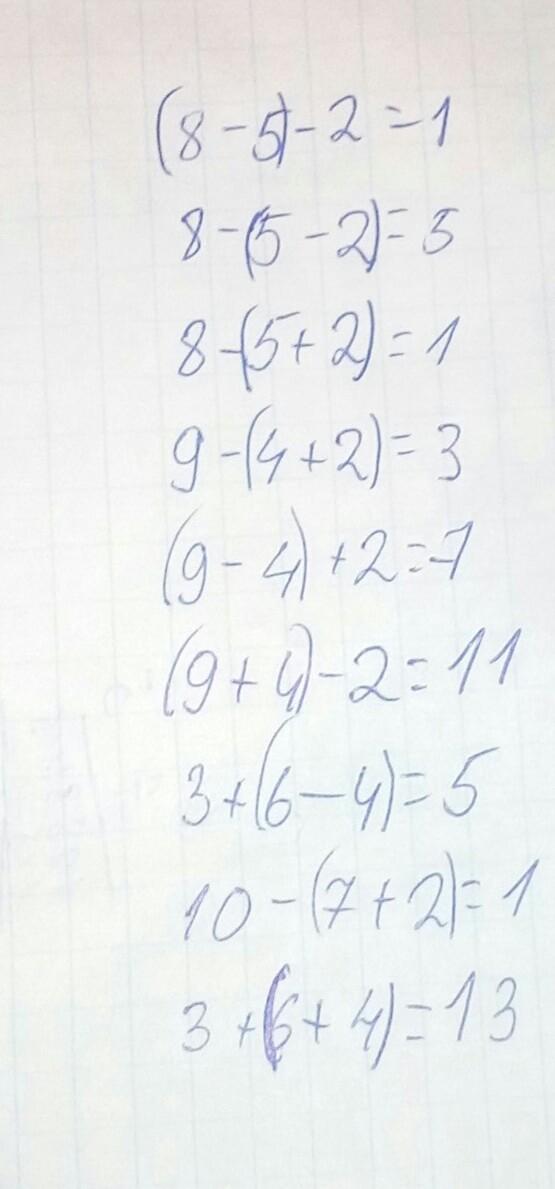 (8-5)-2=1
8-(5-2)=5
8-(5+2)=1
9-(4+2)=3
(9-4)+2=7
(9+4)-2=11
3+(6-4)=5
10-(7+2)=1
3+(6+4)=13